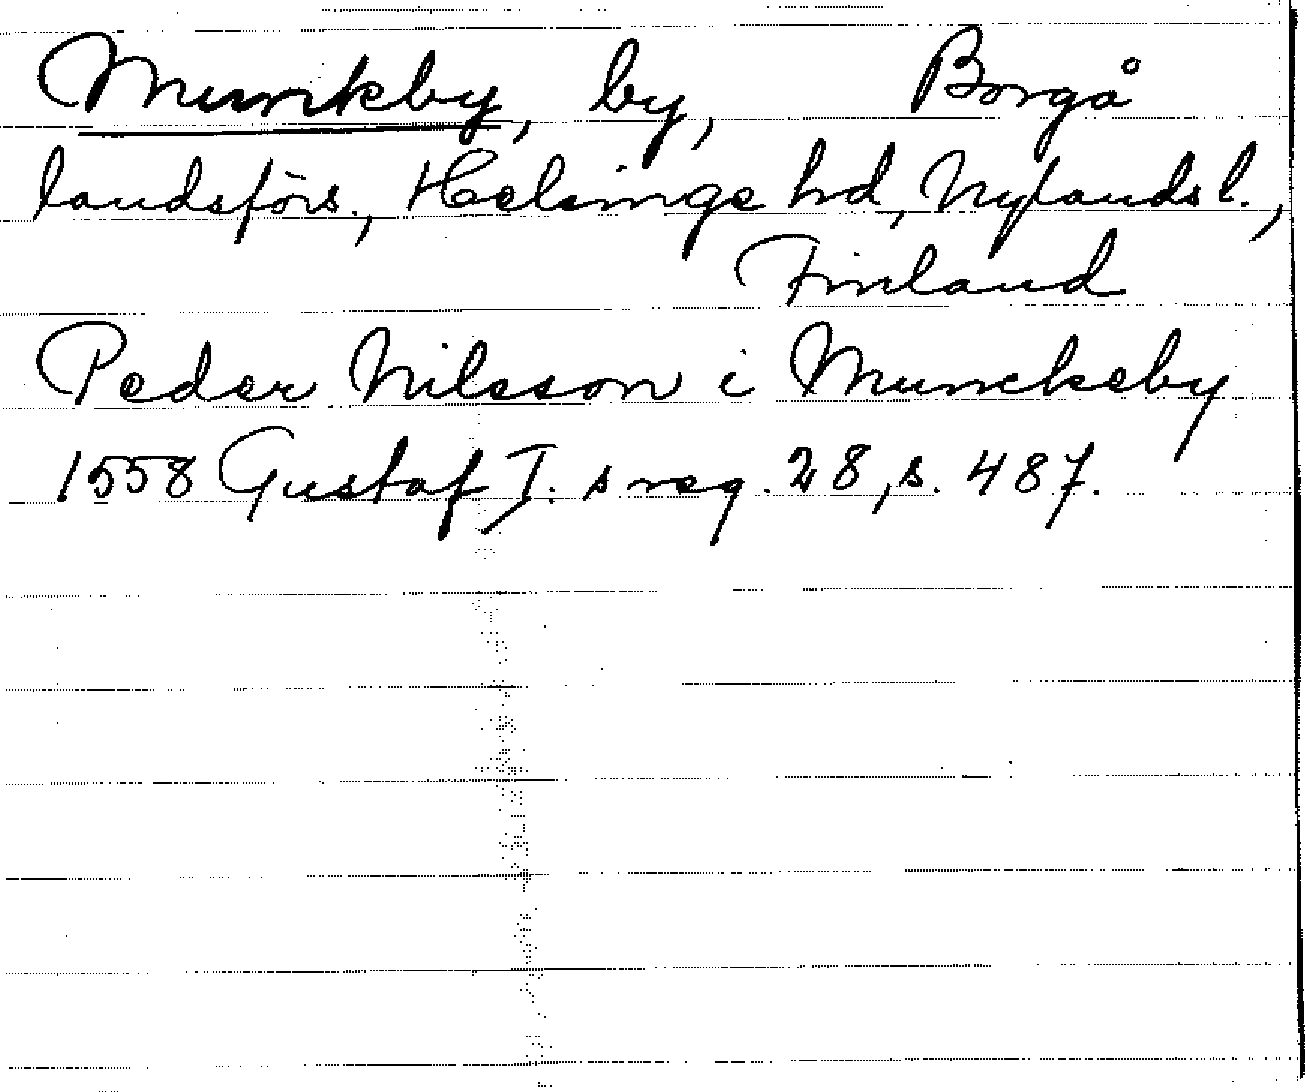 Munkby, by, Borgå
landsförs., Helsinge hd, Nylands l.,
Finland
Peder Nilsson i Munckeby
1558 Gustaf I. s reg. 28, s. 487.